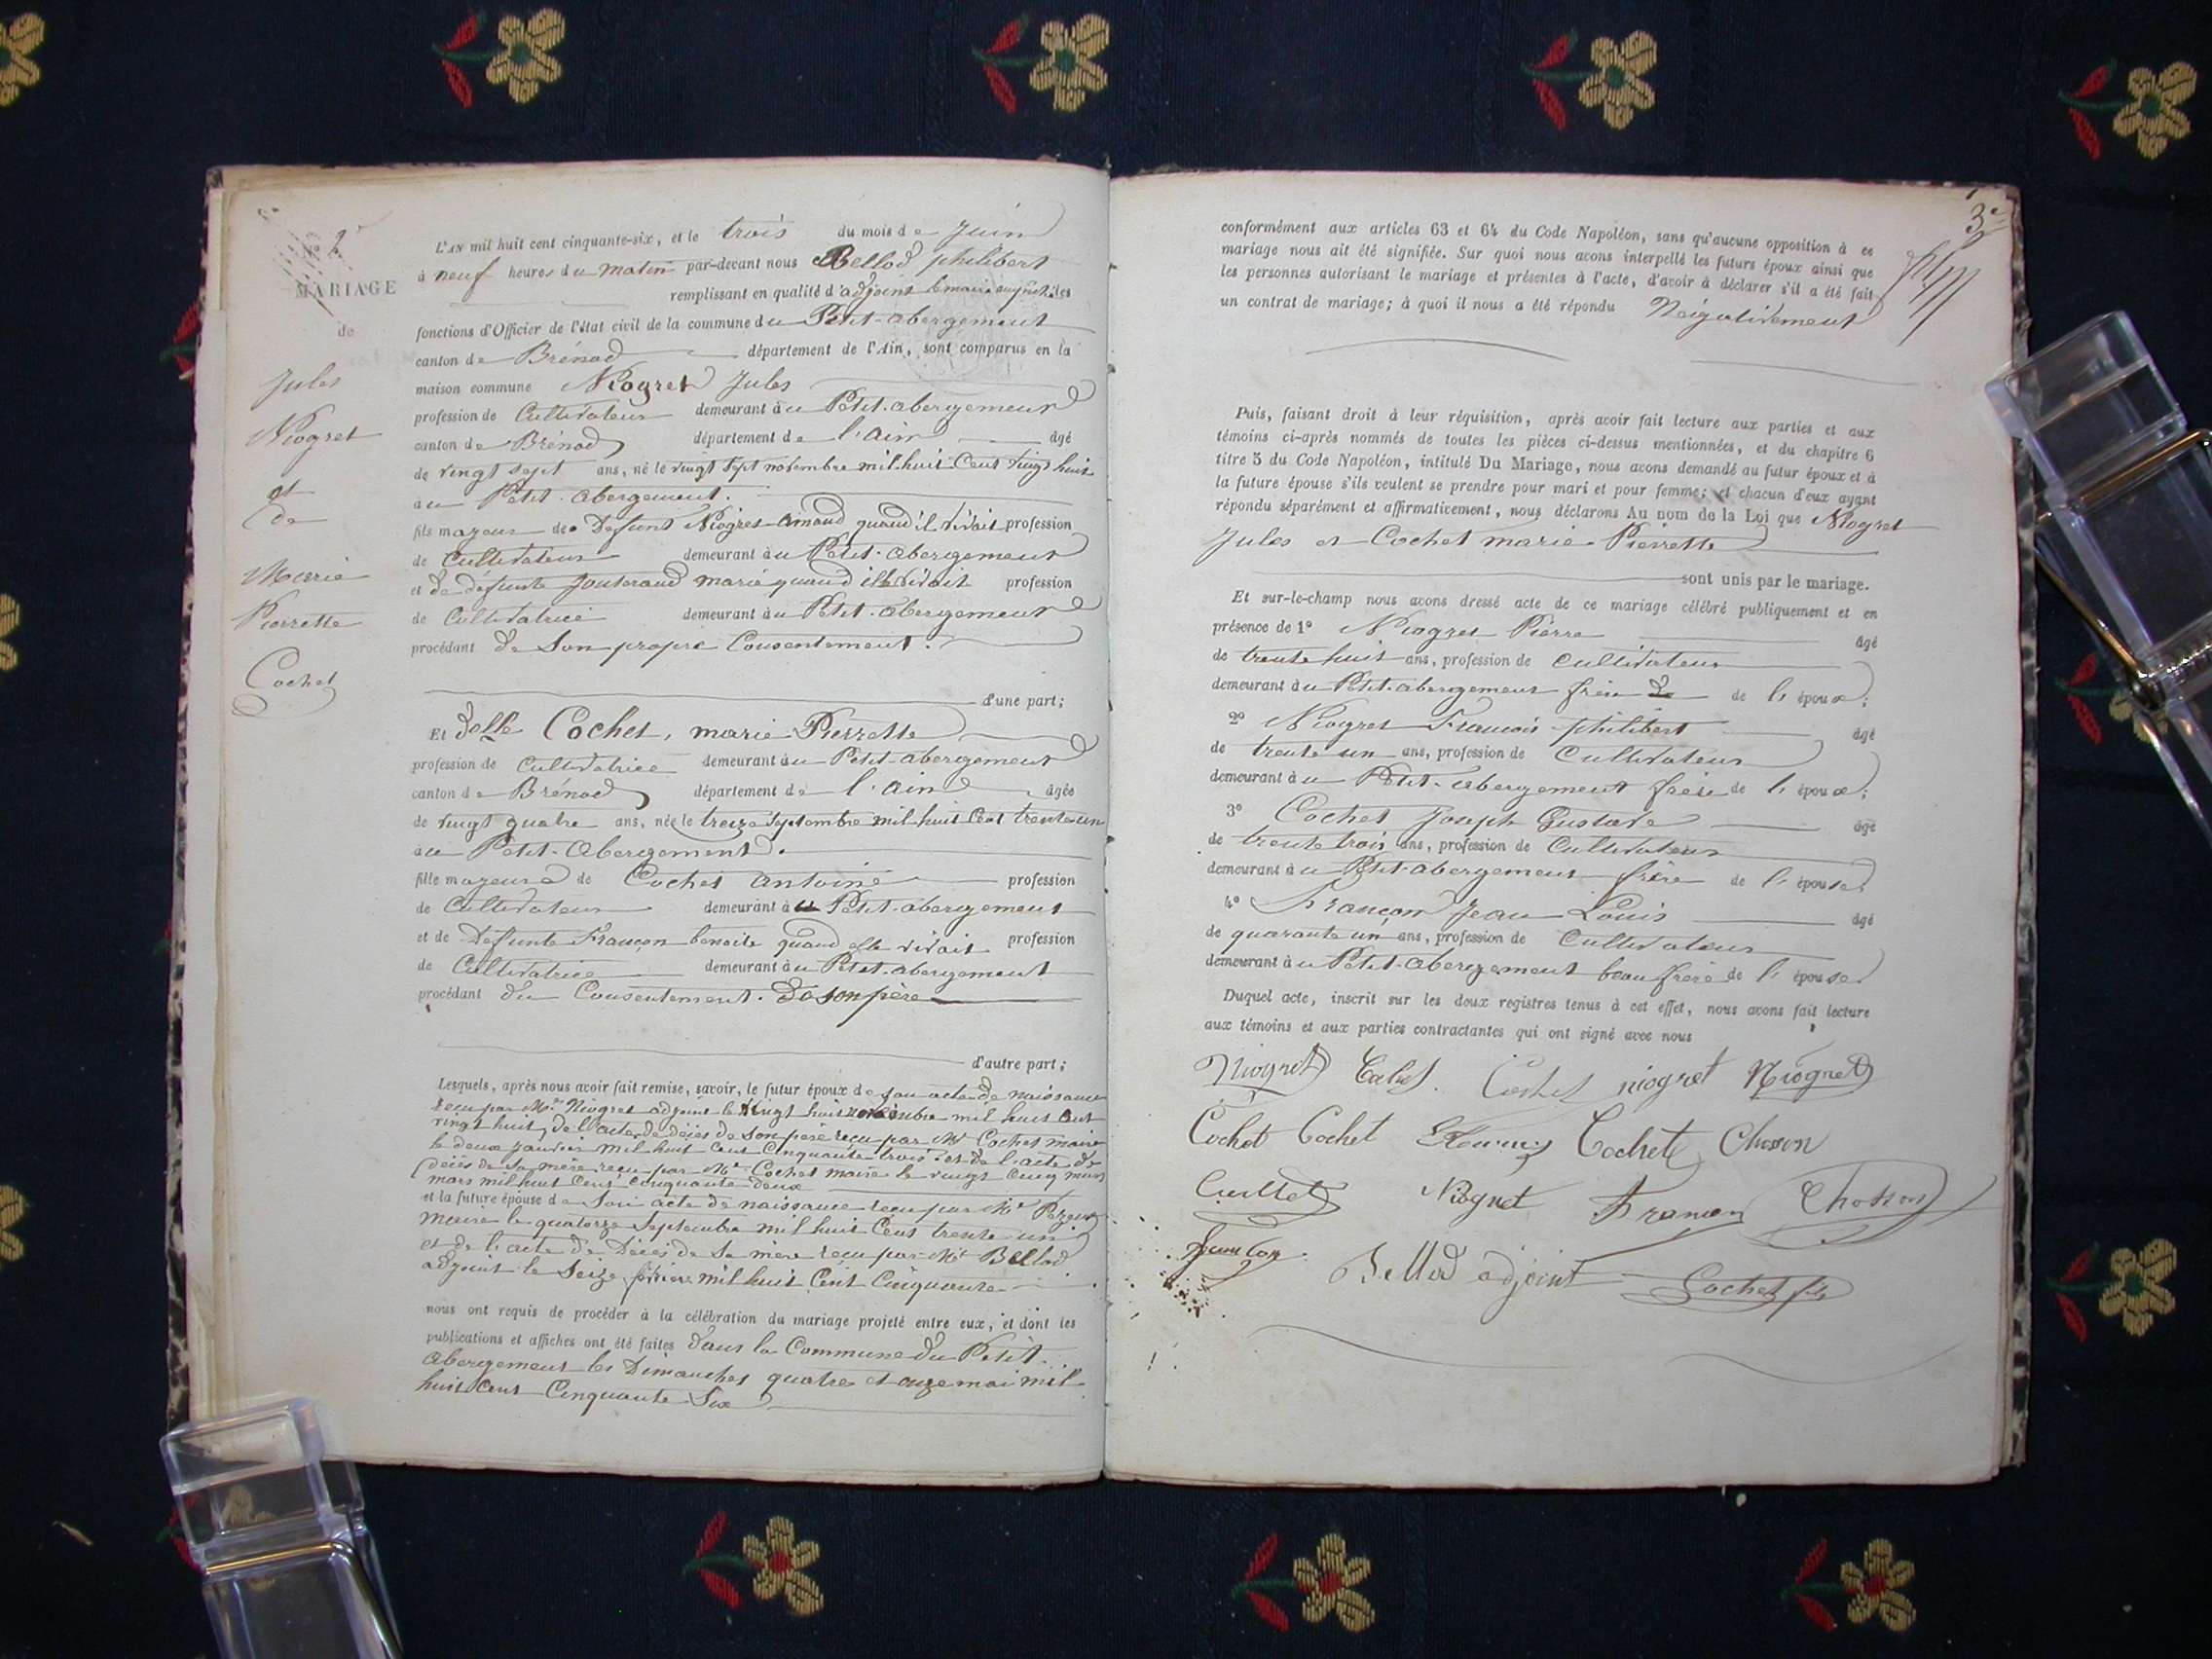 N° 2
MARIAGE
de
Jules
Niogret
et
de
Marie
Pierrette
Cochet
L'AN mil huit cent cinquante-six, et le trois du mois de Juin
à neuf heures du matin par-devant nous Bellod philibert
remplissant en qualité d'adjoint le maire empêché les
fonctions d'Officier de l'état civil de la commune du Petit-abergement
canton de Brénod département de l'Ain, sont comparus en la
maison commune Niogret Jules
profession de Cultivateur demeurant au Petit-abergement
canton de Brénod département de l'ain âgé
de vingt sept ans, né le vingt sept novembre mil huit Cent vingt huit
au Petit-abergement.
fils majeur de Défunt Niogret amand quand il vivait profession
de Cultivateur demeurant au Petit-abergement
et de défunte Jouteraud marie quand elle vivait profession
de Cultivatrice demeurant au Petit-abergement
procédant de Son propre Consentement.
d'une part;
Et Delle Cochet, marie Pierrette
profession de Cultivatrice demeurant au Petit-abergement
canton de Brénod département de l'ain âgée
de vingt quatre ans, née le treize Septembre mil huit Cent trente un
au Petit-Abergement.
fille majeure de Cochet antoine profession
de Cultivateur demeurant au Petit-abergement
et de Défunte Françon benoite quand elle vivait profession
de Cultivatrice demeurant au Petit-abergement
procédant du Consentement. De son père
d'autre part;
Lesquels, après nous avoir fait remise, savoir, le futur époux de son acte de naissance
recu par Mr Niogret adjoint le vingt huit novembre mil huit Cent
vingt huit, de l'acte de décès de son père reçu par Mr Cochet maire
le deux janvier mil huit Cent Cinquante trois et de l'acte de
décès de sa mère reçu par Mr Cochet maire le vingt Cinq mars
mars mil huit Cent Cinquante deux
et la future épouse de Son acte de naissance reçu par Mr
maire le quatorze Septembre mil huit Cent trente un
et de l'acte de Décès de Sa mère reçu par Mr Bellod
adjoint le Seize février mil huit Cent Cinquante
nous ont requis de procéder à la célébration du mariage projeté entre eux, et dont les
publications et affiches ont été faites dans la Commune du Petit
abergement les Dimanches quatre et onze mai mil
huit Cent Cinquante Six
3e
conformément aux articles 63 et 64 du Code Napoléon, sans qu'aucune opposition à ce
mariage nous ait été signifiée. Sur quoi nous avons interpellé les futurs époux ainsi que
les personnes autorisant le mariage et présentes à l'acte, d'avoir à déclarer s'il a été fait
un contrat de mariage; à quoi il nous a été répondu Négativement
Puis, faisant droit à leur réquisition, après avoir fait lecture aux parties et aux
témoins ci-après nommés de toutes les pièces ci-dessus mentionnées, et du chapitre 6
titre 5 du Code Napoléon, intitulé Du Mariage, nous avons demandé au futur époux et à
la future épouse s'ils veulent se prendre pour mari et pour femme; et chacun d'eux ayant
répondu séparément et affirmativement, nous déclarons Au nom de la Loi que Niogret
Jules et Cochet marie Pierrette
sont unis par le mariage.
Et sur-le-champ nous avons dressé acte de ce mariage célébré publiquement et en
présence de 1° Niogret Pierre âgé
de trente huit ans, profession de Cultivateur
demeurant au Petit-abergement frère de l'époux;
2° Niogret François philibert âgé
de trente un ans, profession de Cultivateur
demeurant au Petit-abergement frère de l'époux;
3° Cochet Joseph Gustave âgé
de trente trois ans, profession de Cultivateur
demeurant au Petit-abergement frère de l'épouse
4° Françon Jean Louis âgé
de quarante un ans, profession de Cultivateur
demeurant au Petit-Abergement beau frère de l'épouse
Duquel acte, inscrit sur les deux registres tenus à cet effet, nous avons fait lecture
aux témoins et aux parties contractantes qui ont signé avec nous
Niogret Cochet niogret Niogret
Cochet Cochet Cochet Chosson
Niogret Françon Chosson
Bellod adjoint Cochet